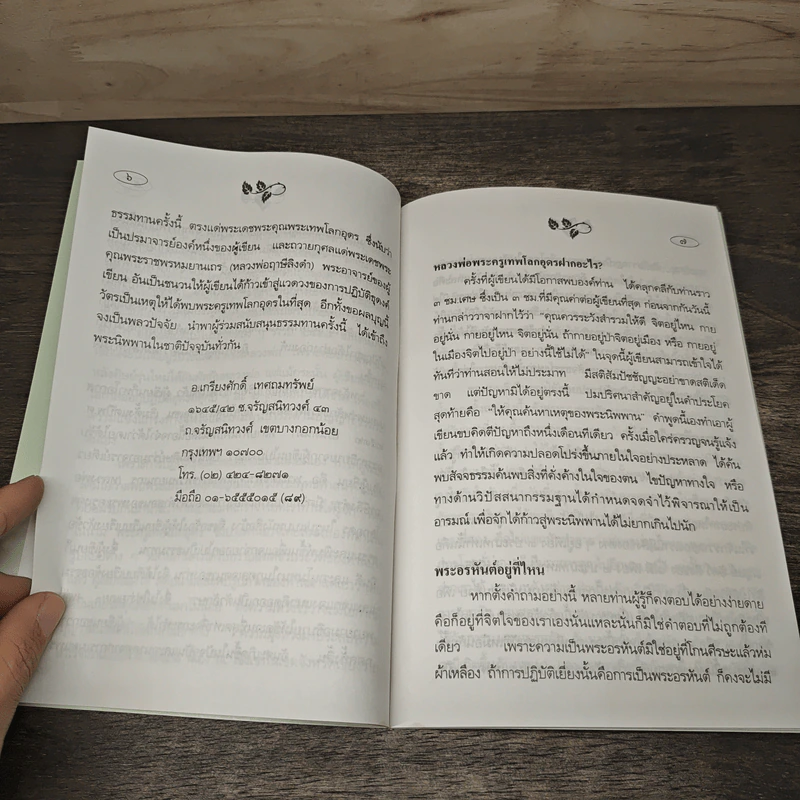 ๖
ธรรมทานครั้งนี้ ตรงแด่พระเดชพระคุณพระเทพโลกอุดร ซึ่งนับว่า
เป็นปรมาจารย์องค์หนึ่งของผู้เขียน และถวายกุศลแด่พระเดชพระ
คุณพระราชพรหมยานเถร (หลวงพ่อฤาษีลิงดำ) พระอาจารย์ของผู้
เขียน อันเป็นชนวนให้ผู้เขียนได้ก้าวเข้าสู่แวดวงของการปฏิบัติธุดงค์
วัตรเป็นเหตุให้ได้พบพระครูเทพโลกอุดรในที่สุด อีกทั้งขอผลบุญนี้
จงเป็นพลวปัจจัย นำพาผู้ร่วมสนับสนุนธรรมทานครั้งนี้ ได้เข้าถึง
พระนิพพานในชาติปัจจุบันทั่วกัน
อ.เกรียงศักดิ์ เทศถมทรัพย์
๑๖๔๕/๔๒ ซ.จรัญสนิทวงศ์ ๔๓
ถ.จรัญสนิทวงศ์ เขตบางกอกน้อย
กรุงเทพฯ ๑๐๗๐๐
โทร. (๐๒) ๔๒๔-๘๒๗๑
มือถือ ๐๑-๖๕๕๕๐๑๕ (๘๙)
๗
หลวงพ่อพระครูเทพโลกอุดรฝากอะไร?
ครั้งที่ผู้เขียนได้มีโอกาสพบองค์ท่าน ได้คลุกคลีกับท่านราว
๓ ชม.เศษ ซึ่งเป็น ๓ ชม.ที่มีคุณค่าต่อผู้เขียนที่สุด ก่อนจากกันวันนี้
ท่านกล่าววาจาฝากไว้ว่า "คุณควรระวังสำรวมให้ดี จิตอยู่ไหน กาย
อยู่นั่น กายอยู่ไหน จิตอยู่นั่น ถ้ากายอยู่ป่าจิตอยู่เมือง หรือ กายอยู่
ในเมืองจิตไปอยู่ป่า อย่างนี้ใช้ไม่ได้" ในจุดนี้ผู้เขียนสามารถเข้าใจได้
ทันทีว่าท่านสอนให้ไม่ประมาท มีสติสัมปัชชัญญะอย่าขาดสติเด็ด
ขาด แต่ปัญหามิได้อยู่ตรงนี้ ปมปริศนาสำคัญอยู่ในคำประโยค
สุดท้ายคือ "ให้คุณค้นหาเหตุของพระนิพพาน" คำพูดนี้เองทำเอาผู้
เขียนขบคิดตีปัญหาถึงหนึ่งเดือนทีเดียว ครั้งเมื่อใคร่ครวญจนรู้แจ้ง
แล้ว ทำให้เกิดความปลอดโปร่งขึ้นภายในใจอย่างประหลาด ได้ค้น
พบสัจจธรรมค้นพบสิ่งที่คั่งค้างในใจของตน ไขปัญหาทางใจ หรือ
ทางด้านวิปัสสนากรรมฐานได้กำหนดจดจำไว้พิจารณาให้เป็น
อารมณ์ เพื่อจักได้ก้าวสู่พระนิพพานได้ไม่ยากเกินไปนัก
พระอรหันต์อยู่ที่ไหน
หากตั้งคำถามอย่างนี้ หลายท่านผู้รู้ก็คงตอบได้อย่างง่ายดาย
คือก็อยู่ที่จิตใจของเราเองนั่นแหละนั่นก็มิใช่คำตอบที่ไม่ถูกต้องที
เดียว เพราะความเป็นพระอรหันต์มิใช่อยู่ที่โกนศีรษะแล้วห่ม
ผ้าเหลือง ถ้าการปฏิบัติเยี่ยงนั้นคือการเป็นพระอรหันต์ ก็คงจะไม่มี